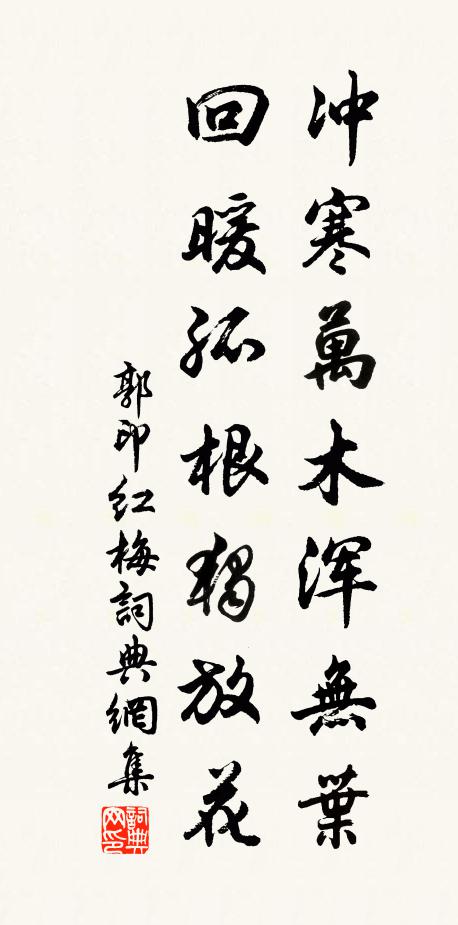 冲寒萬木浑無葉
回暖孤根獨放花
郭印红梅詞典網集
詞典网印